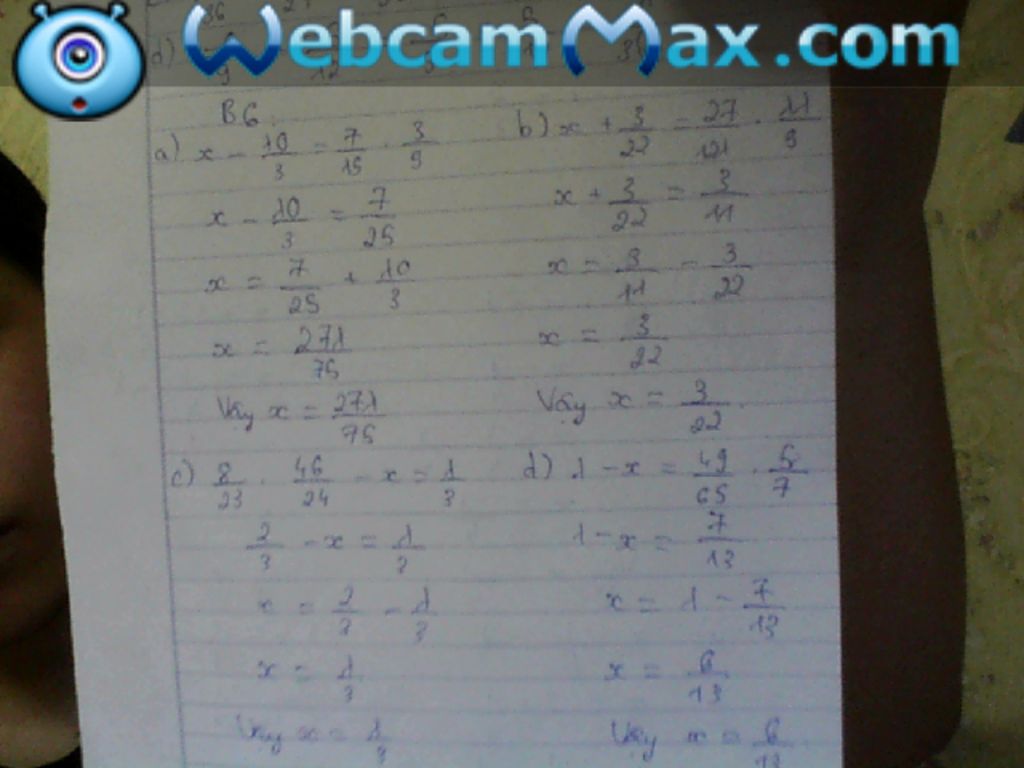 WebcamMax.com
B6
a) x - 10/3 = 7/15 . 3/9
x - 10/3 = 7/25
x = 7/25 + 10/3
x = 271/75
Vậy x = 271/75
b) x + 3/22 = 27/121 . 11/9
x + 3/22 = 3/11
x = 3/11 - 3/22
x = 3/22
Vậy x = 3/22.
c) 8/23 . 46/24 - x = 1/3
2/3 - x = 1/3
x = 2/3 - 1/3
x = 1/3
Vậy x = 1/3
d) 1 - x = 49/65 . 5/7
1 - x = 7/13
x = 1 - 7/13
x = 6/13
Vậy x = 6/13